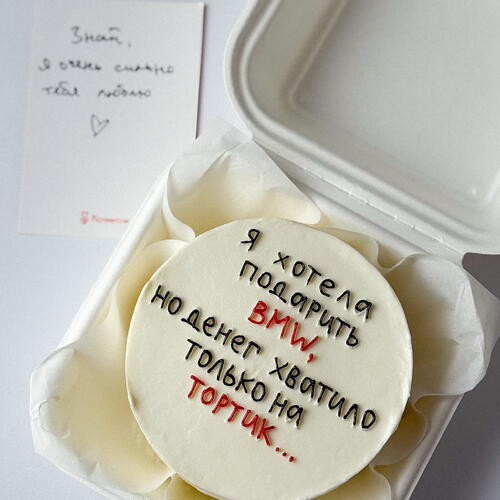 Знай,
я очень сильно
тебя люблю
Я ХОТЕЛА
ПОДАРИТЬ
BMW,
НО ДЕНЕГ ХВАТИЛО
ТОЛЬКО НА
ТОРТИК...